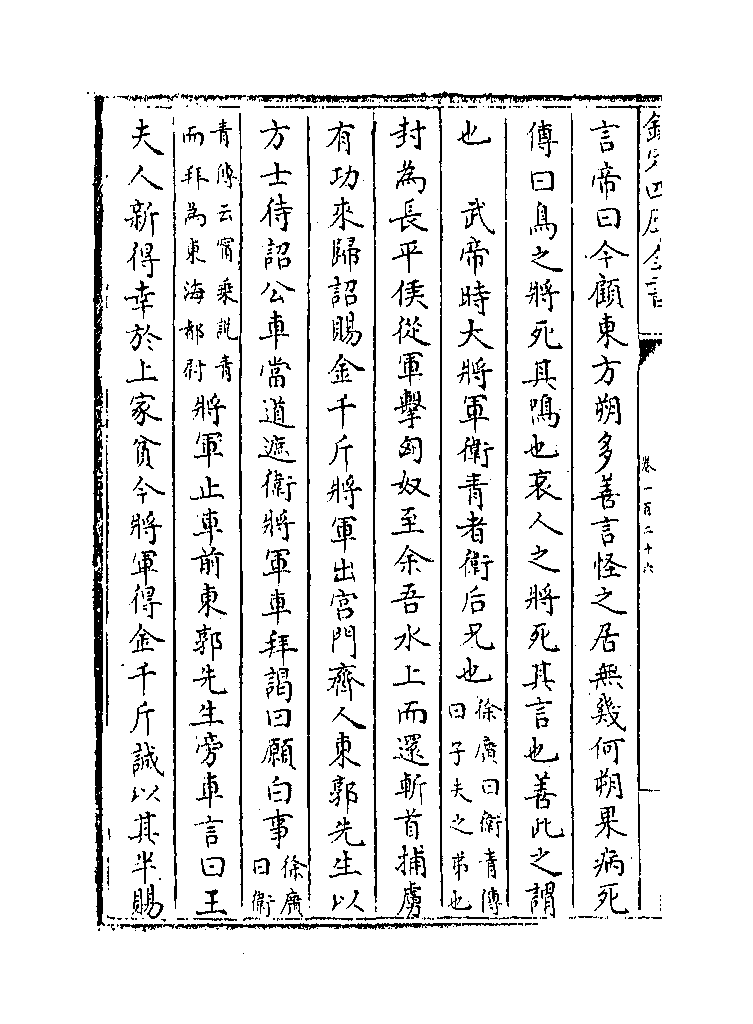 欽定四庫全書
卷一百二十六
言帝曰今顧東方朔多善言怪之居無幾何朔果病死
傳曰鳥之將死其鳴也哀人之將死其言也善此之謂
也　武帝時大將軍衛青者衛后兄也徐廣曰衛青傳曰子夫之弟也
封為長平侯從軍擊匈奴至余吾水上而還斬首捕虜
有功來歸詔賜金千斤將軍出宫門齊人東郭先生以
方士待詔公車當道遮衛將軍車拜謁曰願白事徐廣曰衛
青傳云甯乗説青而拜為東海都尉將軍止車前東郭先生旁車言曰王
夫人新得幸於上家貧今將軍得金千斤誠以其半賜